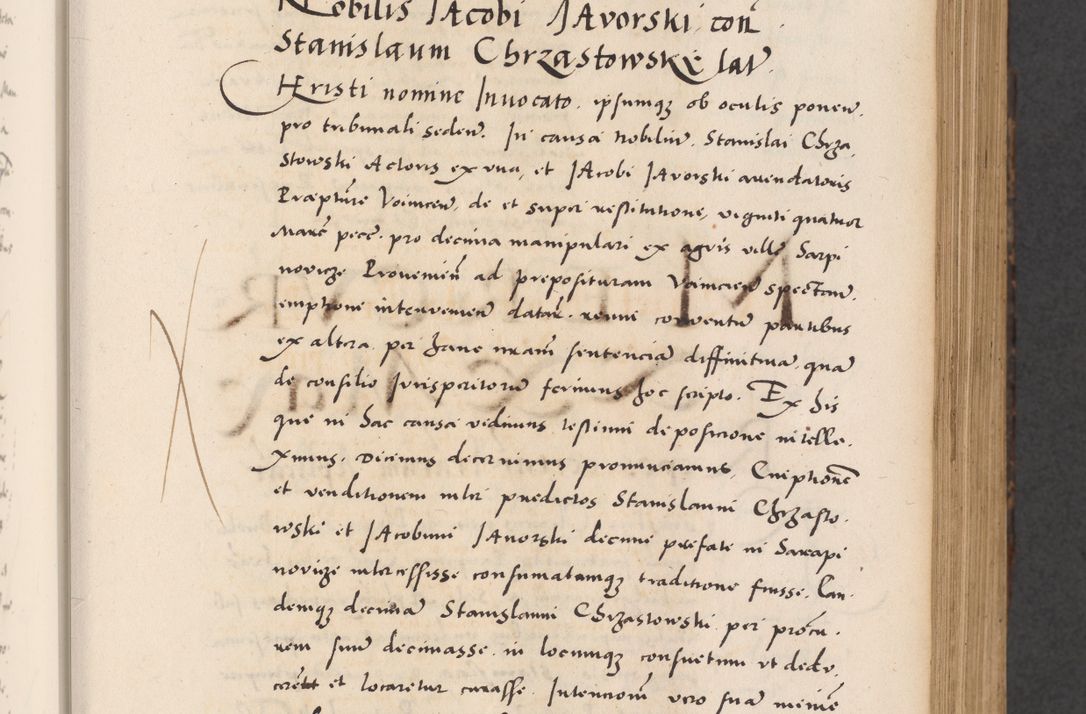 Nobilis JAcobi JAvorski con
Stanislaum Chrzastowskẏ lat
CHristi nomine Invocato. ipsumqȝ ob oculis ponen.
pro tribunali seden. In causa nobiliũ. Stanislai Chrza,
stowski Actoris ex vna, et JAcobi JAvorski arrendatoris
Præpture Voinicen, de et super restitutione, viginti quatuor
Marc pece. pro decima manipulari ex agris ville Sarpi
novicze Provenien ad preposituram Voinicien spectan.
emptione intervenien datar. reuni conventu partibus
ex altera. per hanc nram sentenciã diffinitiua, quã
de consilio Jurisperitorũ ferimus hoc scripto. Ex his
que in hac causa vidimus testium deposicione intelle.
ximus. Dicimus decernimus pronunciamus, Emptionẽ
et venditionem inter predictos Stanislaum Chrzasto.
wski et JAcobum JAuorski decime prefate in Sarapi
novicze intercessisse consumatamqȝ traditione fuisse. Ean.
demqȝ decimã Stanislaum Chrzastowski per procu.
rem suũ decimasse. in locumqȝ consuetum vt dedu.
cerett et locaretur curasse. Intencionem vero suã